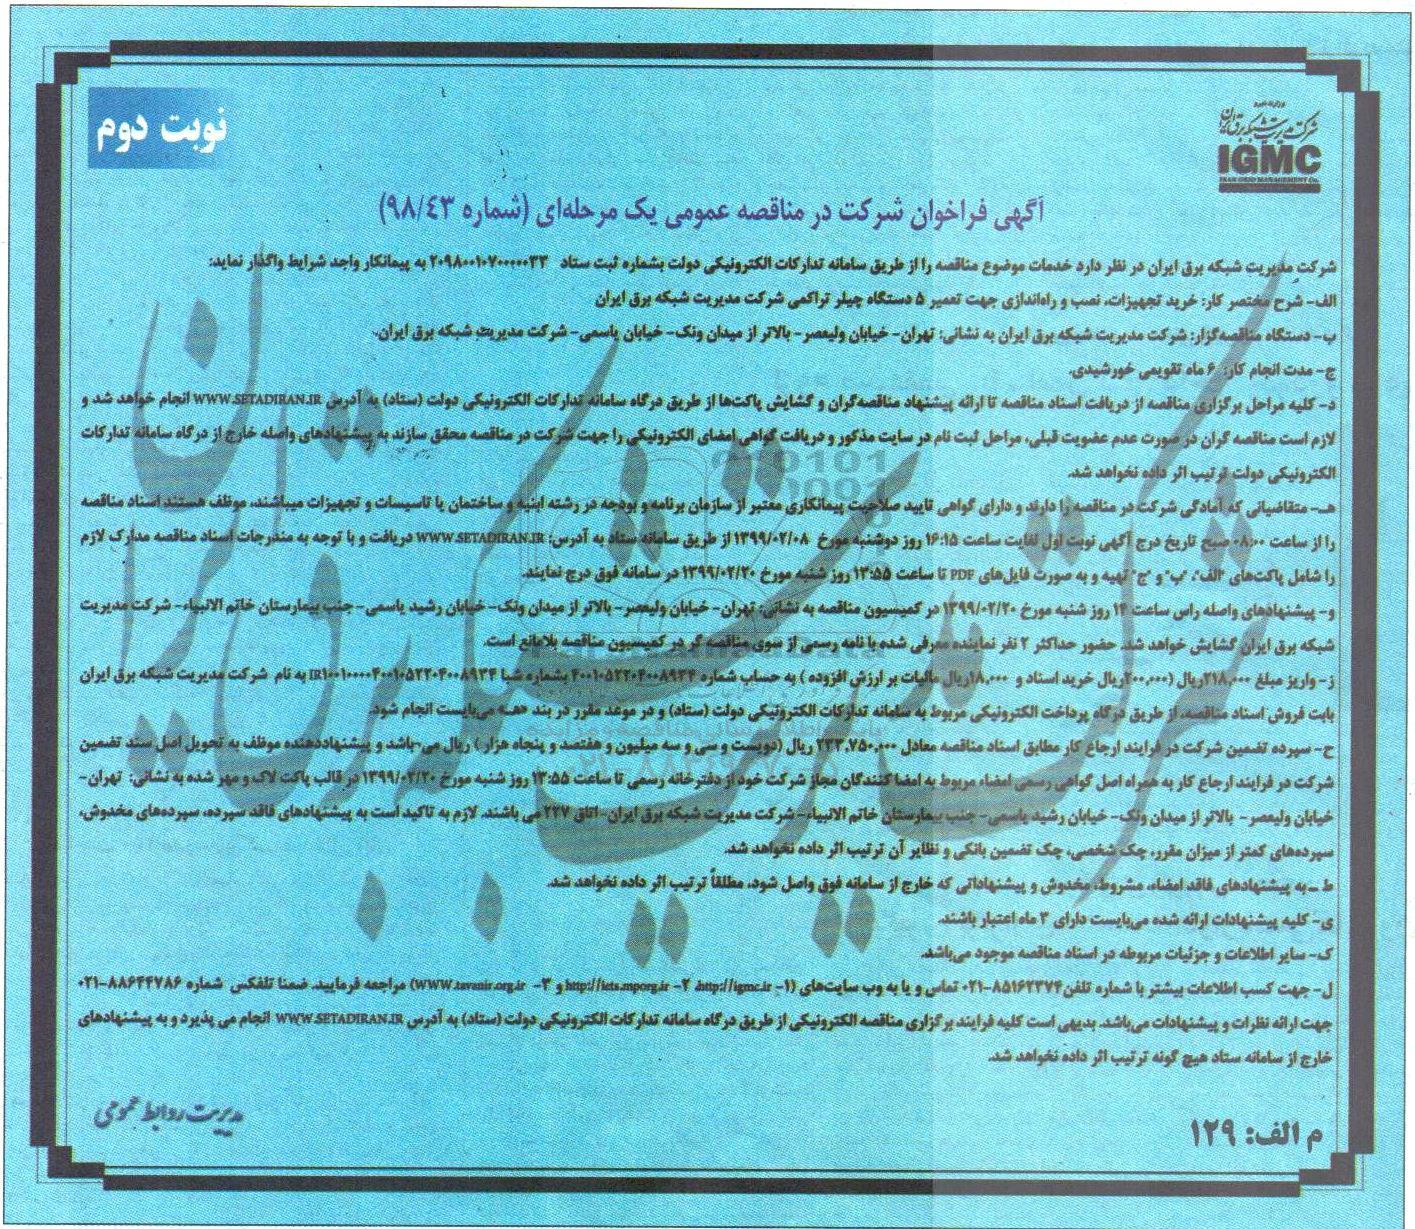 وزارت نیرو
شرکت مدیریت شبکه برق ایران
IGMC
IRAN GRID MANAGEMENT Co.
نوبت دوم
آگهی فراخوان شرکت در مناقصه عمومی یک مرحله‌ای (شماره ۹۸/۴۳)
شرکت مدیریت شبکه برق ایران در نظر دارد خدمات موضوع مناقصه را از طریق سامانه تدارکات الکترونیکی دولت بشماره ثبت ستاد ۲۰۹۸۰۰۱۰۷۰۰۰۰۰۳۳ به پیمانکار واجد شرایط واگذار نماید:
الف- شرح مختصر کار: خرید تجهیزات، نصب و راه‌اندازی جهت تعمیر ۵ دستگاه چیلر تراکمی شرکت مدیریت شبکه برق ایران
ب- دستگاه مناقصه‌گزار: شرکت مدیریت شبکه برق ایران به نشانی: تهران- خیابان ولیعصر- بالاتر از میدان ونک- خیابان یاسمی- شرکت مدیریت شبکه برق ایران.
ج- مدت انجام کار: ۶ ماه تقویمی خورشیدی.
د- کلیه مراحل برگزاری مناقصه از دریافت اسناد مناقصه تا ارائه پیشنهاد مناقصه‌گران و گشایش پاکت‌ها از طریق درگاه سامانه تدارکات الکترونیکی دولت (ستاد) به آدرس WWW.SETADIRAN.IR انجام خواهد شد و
لازم است مناقصه گران در صورت عدم عضویت قبلی، مراحل ثبت نام در سایت مذکور و دریافت گواهی امضای الکترونیکی را جهت شرکت در مناقصه محقق سازند به پیشنهادهای واصله خارج از درگاه سامانه تدارکات
الکترونیکی دولت ترتیب اثر داده نخواهد شد.
هـ- متقاضیانی که آمادگی شرکت در مناقصه را دارند و دارای گواهی تایید صلاحیت پیمانکاری معتبر از سازمان برنامه و بودجه در رشته ابنیه و ساختمان یا تاسیسات و تجهیزات میباشند، موظف هستند اسناد مناقصه
را از ساعت ۰۸:۰۰ صبح تاریخ درج آگهی نوبت اول لغایت ساعت ۱۶:۱۵ روز دوشنبه مورخ ۱۳۹۹/۰۲/۰۸ از طریق سامانه ستاد به آدرس: WWW.SETADIRAN.IR دریافت و با توجه به مندرجات اسناد مناقصه مدارک لازم
را شامل پاکت‌های "الف"، "ب" و "ج" تهیه و به صورت فایل‌های PDF تا ساعت ۱۳:۵۵ روز شنبه مورخ ۱۳۹۹/۰۲/۲۰ در سامانه فوق درج نمایند.
و- پیشنهادهای واصله راس ساعت ۱۴ روز شنبه مورخ ۱۳۹۹/۰۲/۲۰ در کمیسیون مناقصه به نشانی: تهران- خیابان ولیعصر- بالاتر از میدان ونک- خیابان رشید یاسمی- جنب بیمارستان خاتم الانبیاء- شرکت مدیریت
شبکه برق ایران گشایش خواهد شد. حضور حداکثر ۲ نفر نماینده معرفی شده با نامه رسمی از سوی مناقصه گر در کمیسیون مناقصه بلامانع است.
ز- واریز مبلغ ۲۱۸,۰۰۰ریال (۲۰۰,۰۰۰ریال خرید اسناد و ۱۸,۰۰۰ریال مالیات بر ارزش افزوده ) به حساب شماره ۴۰۰۱۰۵۲۲۰۴۰۰۸۹۳۴ بشماره شبا به نام شرکت مدیریت شبکه برق ایران
بابت فروش اسناد مناقصه، از طریق درگاه پرداخت الکترونیکی مربوط به سامانه تدارکات الکترونیکی دولت (ستاد) و در موعد مقرر در بند «هـ» می‌بایست انجام شود.
ح- سپرده تضمین شرکت در فرایند ارجاع کار مطابق اسناد مناقصه معادل ۲۳۳,۷۵۰,۰۰۰ ریال (دویست و سی و سه میلیون و هفتصد و پنجاه هزار ) ریال می-باشد و پیشنهاددهنده موظف به تحویل اصل سند تضمین
شرکت در فرایند ارجاع کار به همراه اصل گواهی رسمی امضاء مربوط به امضا کنندگان مجاز شرکت خود از دفترخانه رسمی تا ساعت ۱۳:۵۵ روز شنبه مورخ ۱۳۹۹/۰۲/۲۰ در قالب پاکت لاک و مهر شده به نشانی: تهران-
خیابان ولیعصر- بالاتر از میدان ونک- خیابان رشید یاسمی- جنب بیمارستان خاتم الانبیاء- شرکت مدیریت شبکه برق ایران-اتاق ۲۲۷ می باشند. لازم به تاکید است به پیشنهادهای فاقد سپرده، سپرده‌های مخدوش،
سپرده‌های کمتر از میزان مقرر، چک شخصی، چک تضمین بانکی و نظایر آن ترتیب اثر داده نخواهد شد.
ط ـ به پیشنهادهای فاقد امضاء، مشروط، مخدوش و پیشنهاداتی که خارج از سامانه فوق واصل شود، مطلقاً ترتیب اثر داده نخواهد شد.
ی- کلیه پیشنهادات ارائه شده می‌بایست دارای ۳ ماه اعتبار باشند.
ک- سایر اطلاعات و جزئیات مربوطه در اسناد مناقصه موجود می‌باشد.
ل- جهت کسب اطلاعات بیشتر با شماره تلفن ۸۵۱۶۲۳۷۴-۰۲۱ تماس و یا به وب سایت‌های (۱- http://igmc.ir، ۲- http://iets.mporg.ir و ۳- WWW.tavanir.org.ir) مراجعه فرمایید. ضمنا تلفکس شماره ۸۸۶۴۴۷۸۶-۰۲۱
جهت ارائه نظرات و پیشنهادات می‌باشد. بدیهی است کلیه فرایند برگزاری مناقصه الکترونیکی از طریق درگاه سامانه تدارکات الکترونیکی دولت (ستاد) به آدرس WWW.SETADIRAN.IR انجام می پذیرد و به پیشنهادهای
خارج از سامانه ستاد هیچ گونه ترتیب اثر داده نخواهد شد.
مدیریت روابط عمومی
م الف: ۱۲۹